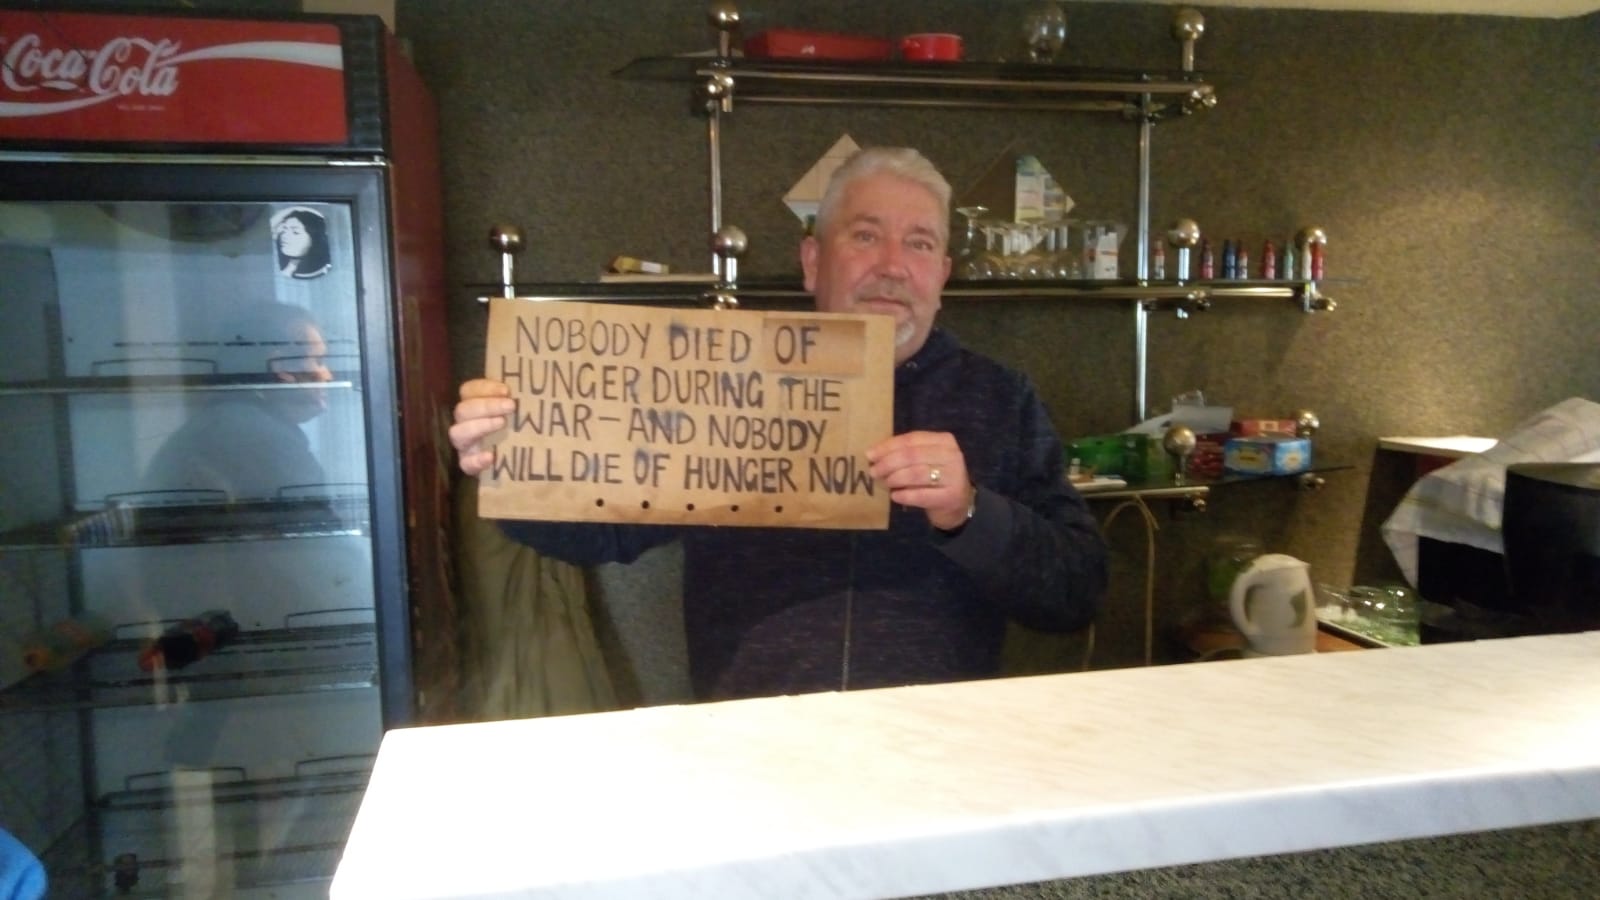 Coca-Cola
NOBODY DIED OF
HUNGER DURING THE
WAR – AND NOBODY
WILL DIE OF HUNGER NOW